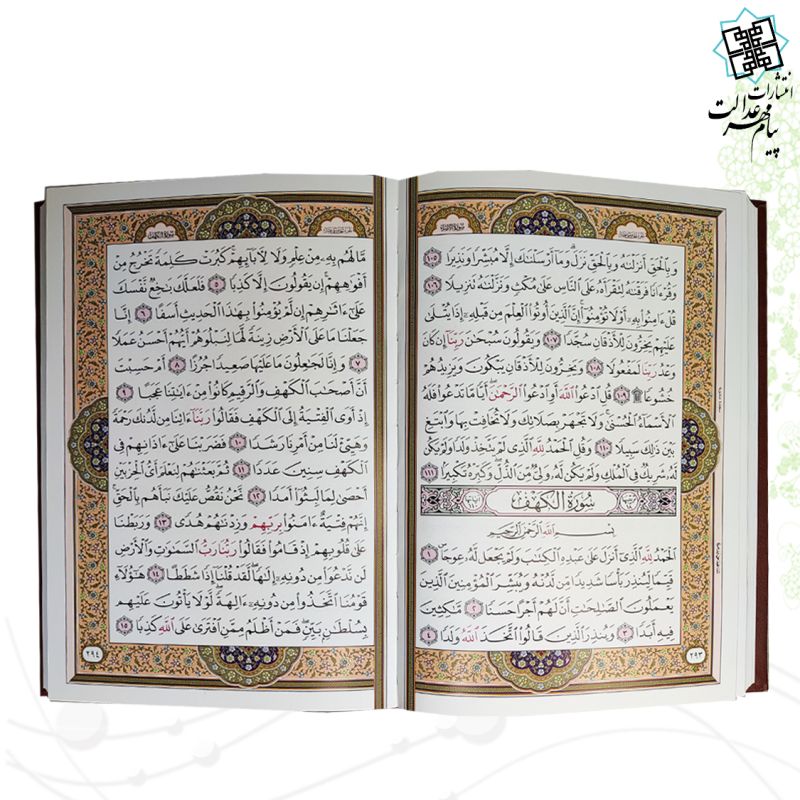 انتشارات
پیام مهر عدالت
وَبِالْحَقِّ أَنزَلْنَٰهُ وَبِالْحَقِّ نَزَلَ وَمَآ أَرْسَلْنَٰكَ إِلَّا مُبَشِّرًا وَنَذِيرًا ١٠٥
وَقُرْءَانًا فَرَقْنَٰهُ لِتَقْرَأَهُۥ عَلَى النَّاسِ عَلَىٰ مُكْثٍ وَنَزَّلْنَٰهُ تَنزِيلًا ١٠٦
قُلْ ءَامِنُوا۟ بِهِۦٓ أَوْ لَا تُؤْمِنُوٓا۟ إِنَّ الَّذِينَ أُوتُوا۟ الْعِلْمَ مِن قَبْلِهِۦٓ إِذَا يُتْلَىٰ
عَلَيْهِمْ يَخِرُّونَ لِلْأَذْقَانِ سُجَّدًا ١٠٧ وَيَقُولُونَ سُبْحَٰنَ رَبِّنَآ إِن كَانَ
وَعْدُ رَبِّنَا لَمَفْعُولًا ١٠٨ وَيَخِرُّونَ لِلْأَذْقَانِ يَبْكُونَ وَيَزِيدُهُمْ
خُشُوعًا ١٠٩ قُلِ ادْعُوا۟ اللَّهَ أَوِ ادْعُوا۟ الرَّحْمَٰنَ أَيًّا مَّا تَدْعُوا۟ فَلَهُ
الْأَسْمَآءُ الْحُسْنَىٰ وَلَا تَجْهَرْ بِصَلَاتِكَ وَلَا تُخَافِتْ بِهَا وَابْتَغِ
بَيْنَ ذَٰلِكَ سَبِيلًا ١١٠ وَقُلِ الْحَمْدُ لِلَّهِ الَّذِى لَمْ يَتَّخِذْ وَلَدًا وَلَمْ يَكُن
لَّهُۥ شَرِيكٌ فِى الْمُلْكِ وَلَمْ يَكُن لَّهُۥ وَلِىٌّ مِّنَ الذُّلِّ وَكَبِّرْهُ تَكْبِيرًۢا ١١١
سُورَةُ الْكَهْفِ
بِسْمِ اللَّهِ الرَّحْمَٰنِ الرَّحِيمِ
الْحَمْدُ لِلَّهِ الَّذِىٓ أَنزَلَ عَلَىٰ عَبْدِهِ الْكِتَٰبَ وَلَمْ يَجْعَل لَّهُۥ عِوَجَا ١
قَيِّمًا لِّيُنذِرَ بَأْسًا شَدِيدًا مِّن لَّدُنْهُ وَيُبَشِّرَ الْمُؤْمِنِينَ الَّذِينَ
يَعْمَلُونَ الصَّٰلِحَٰتِ أَنَّ لَهُمْ أَجْرًا حَسَنًا ٢ مَّٰكِثِينَ
فِيهِ أَبَدًا ٣ وَيُنذِرَ الَّذِينَ قَالُوا۟ اتَّخَذَ اللَّهُ وَلَدًا ٤
٢٩٣
سورة الكهف
مَّا لَهُم بِهِۦ مِنْ عِلْمٍ وَلَا لِـَٔابَآئِهِمْ كَبُرَتْ كَلِمَةً تَخْرُجُ مِنْ
أَفْوَٰهِهِمْ إِن يَقُولُونَ إِلَّا كَذِبًا ٥ فَلَعَلَّكَ بَٰخِعٌ نَّفْسَكَ
عَلَىٰٓ ءَاثَٰرِهِمْ إِن لَّمْ يُؤْمِنُوا۟ بِهَٰذَا الْحَدِيثِ أَسَفًا ٦ إِنَّا
جَعَلْنَا مَا عَلَى الْأَرْضِ زِينَةً لَّهَا لِنَبْلُوَهُمْ أَيُّهُمْ أَحْسَنُ عَمَلًا
٧ وَإِنَّا لَجَٰعِلُونَ مَا عَلَيْهَا صَعِيدًا جُرُزًا ٨ أَمْ حَسِبْتَ
أَنَّ أَصْحَٰبَ الْكَهْفِ وَالرَّقِيمِ كَانُوا۟ مِنْ ءَايَٰتِنَا عَجَبًا ٩
إِذْ أَوَى الْفِتْيَةُ إِلَى الْكَهْفِ فَقَالُوا۟ رَبَّنَآ ءَاتِنَا مِن لَّدُنكَ رَحْمَةً
وَهَيِّئْ لَنَا مِنْ أَمْرِنَا رَشَدًا ١٠ فَضَرَبْنَا عَلَىٰٓ ءَاذَانِهِمْ فِى
الْكَهْفِ سِنِينَ عَدَدًا ١١ ثُمَّ بَعَثْنَٰهُمْ لِنَعْلَمَ أَىُّ الْحِزْبَيْنِ
أَحْصَىٰ لِمَا لَبِثُوٓا۟ أَمَدًا ١٢ نَّحْنُ نَقُصُّ عَلَيْكَ نَبَأَهُم بِالْحَقِّ
إِنَّهُمْ فِتْيَةٌ ءَامَنُوا۟ بِرَبِّهِمْ وَزِدْنَٰهُمْ هُدًى ١٣ وَرَبَطْنَا
عَلَىٰ قُلُوبِهِمْ إِذْ قَامُوا۟ فَقَالُوا۟ رَبُّنَا رَبُّ السَّمَٰوَٰتِ وَالْأَرْضِ
لَن نَّدْعُوَا۟ مِن دُونِهِۦٓ إِلَٰهًا لَّقَدْ قُلْنَآ إِذًا شَطَطًا ١٤ هَٰٓؤُلَآءِ
قَوْمُنَا اتَّخَذُوا۟ مِن دُونِهِۦٓ ءَالِهَةً لَّوْلَا يَأْتُونَ عَلَيْهِم
بِسُلْطَٰنٍۭ بَيِّنٍ فَمَنْ أَظْلَمُ مِمَّنِ افْتَرَىٰ عَلَى اللَّهِ كَذِبًا ١٥
٢٩٤